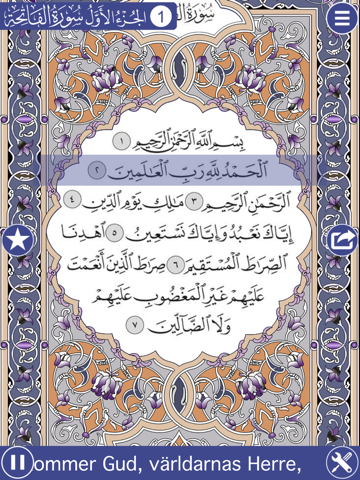 الجزء الأول سورة الفاتحة
1
بِسْمِ اللَّهِ الرَّحْمَٰنِ الرَّحِيمِ ١
الْحَمْدُ لِلَّهِ رَبِّ الْعَالَمِينَ ٢
الرَّحْمَٰنِ الرَّحِيمِ ٣ مَالِكِ يَوْمِ الدِّينِ ٤
إِيَّاكَ نَعْبُدُ وَإِيَّاكَ نَسْتَعِينُ ٥ اهْدِنَا
الصِّرَاطَ الْمُسْتَقِيمَ ٦ صِرَاطَ الَّذِينَ أَنْعَمْتَ
عَلَيْهِمْ غَيْرِ الْمَغْضُوبِ عَلَيْهِمْ
وَلَا الضَّالِّينَ ٧
ommer Gud, världarnas Herre,